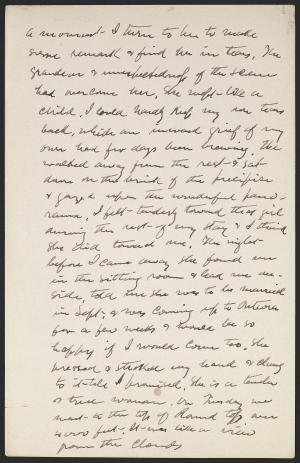 a moment - I turn to her to make
some remark & find her in tears. The
grandeur & unexpectedness of the scene
had overcome her. She wept - like a
child. I could hardly keep my own tears
back, while an inward grief of my
own had for days been brewing. We
walked away from the rest - & sat
down on the brink of the precipice
& gazed upon the wonderful pano-
rama. I felt - tenderly toward that girl
during the rest - of my stay & I think
she did toward me. The night -
before I came away she found me
in the sitting room & lead me in-
side, told me she was to be married
in Sept. & was coming up to
for a few weeks & would be so
happy if I would come too. She
pressed & stroked my hand & clung
to it till I promised. She is a tender
& true woman. On Tuesday we
went - to the top of Round Top over
4000 feet - It was like a view
from the clouds